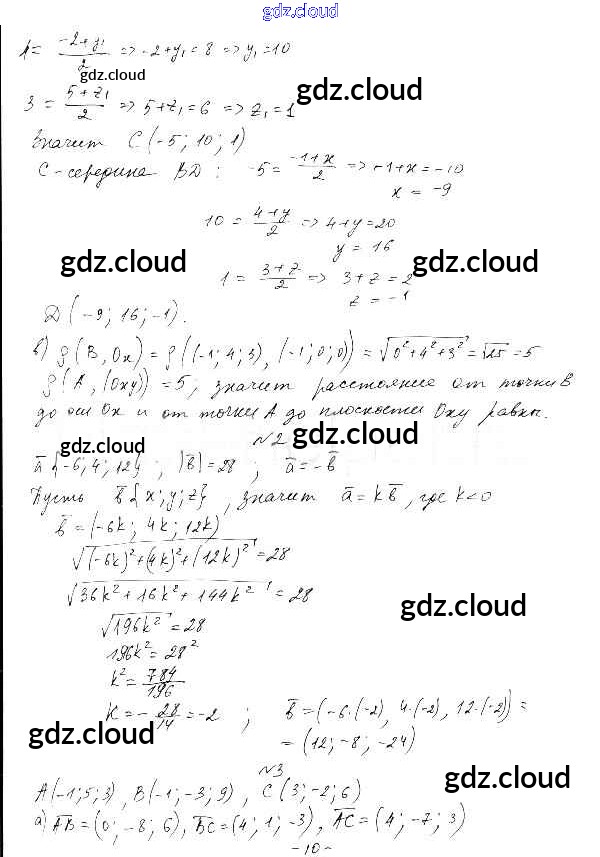 gdz.cloud
4 = (-2+y₁)/2 => -2+y₁ = 8 => y₁ = 10
gdz.cloud
gdz.cloud
3 = (5+z₁)/2 => 5+z₁ = 6 => z₁ = 1
Значит C (-5; 10; 1)
C-середина BD: -5 = (-1+x)/2 => -1+x = -10
x = -9
10 = (4+y)/2 => 4+y = 20
y = 16
gdz.cloud
gdz.cloud
1 = (3+z)/2 => 3+z = 2
z = -1
D (-9; 16; -1).
б) ρ(B, Ox) = ρ((-1; 4; 3), (-1; 0; 0)) = √(0²+4²+3²) = √25 = 5
ρ(A, (Oxy)) = 5, значит расстояние от точки B
до оси Ox и от точки A до плоскости Oxy равны.
№2
gdz.cloud
gdz.cloud
a̅ {-6; 4; 12} ; |b̅| = 28 ; a̅ = -b̅
Пусть b̅ {x; y; z} , значит a̅ = k b̅, где k<0
b̅ = (-6k; 4k; 12k)
√((-6k)²+(4k)²+(12k)²) = 28
√(36k²+16k²+144k²) = 28
gdz.cloud
gdz.cloud
√(196k²) = 28
196k² = 28²
k² = 784/196
k = -28/14 = -2 ; b̅ = (-6·(-2), 4·(-2), 12·(-2)) =
= (12; -8; -24)
gdz.cloud
gdz.cloud
№3
A(-1; 5; 3) , B(-1; -3; 9) , C (3; -2; 6)
gdz.cloud
а) A̅B̅ = (0; -8; 6), B̅C̅ = (4; 1; -3), A̅C̅ = (4; -7; 3)
gdz.cloud
-10-